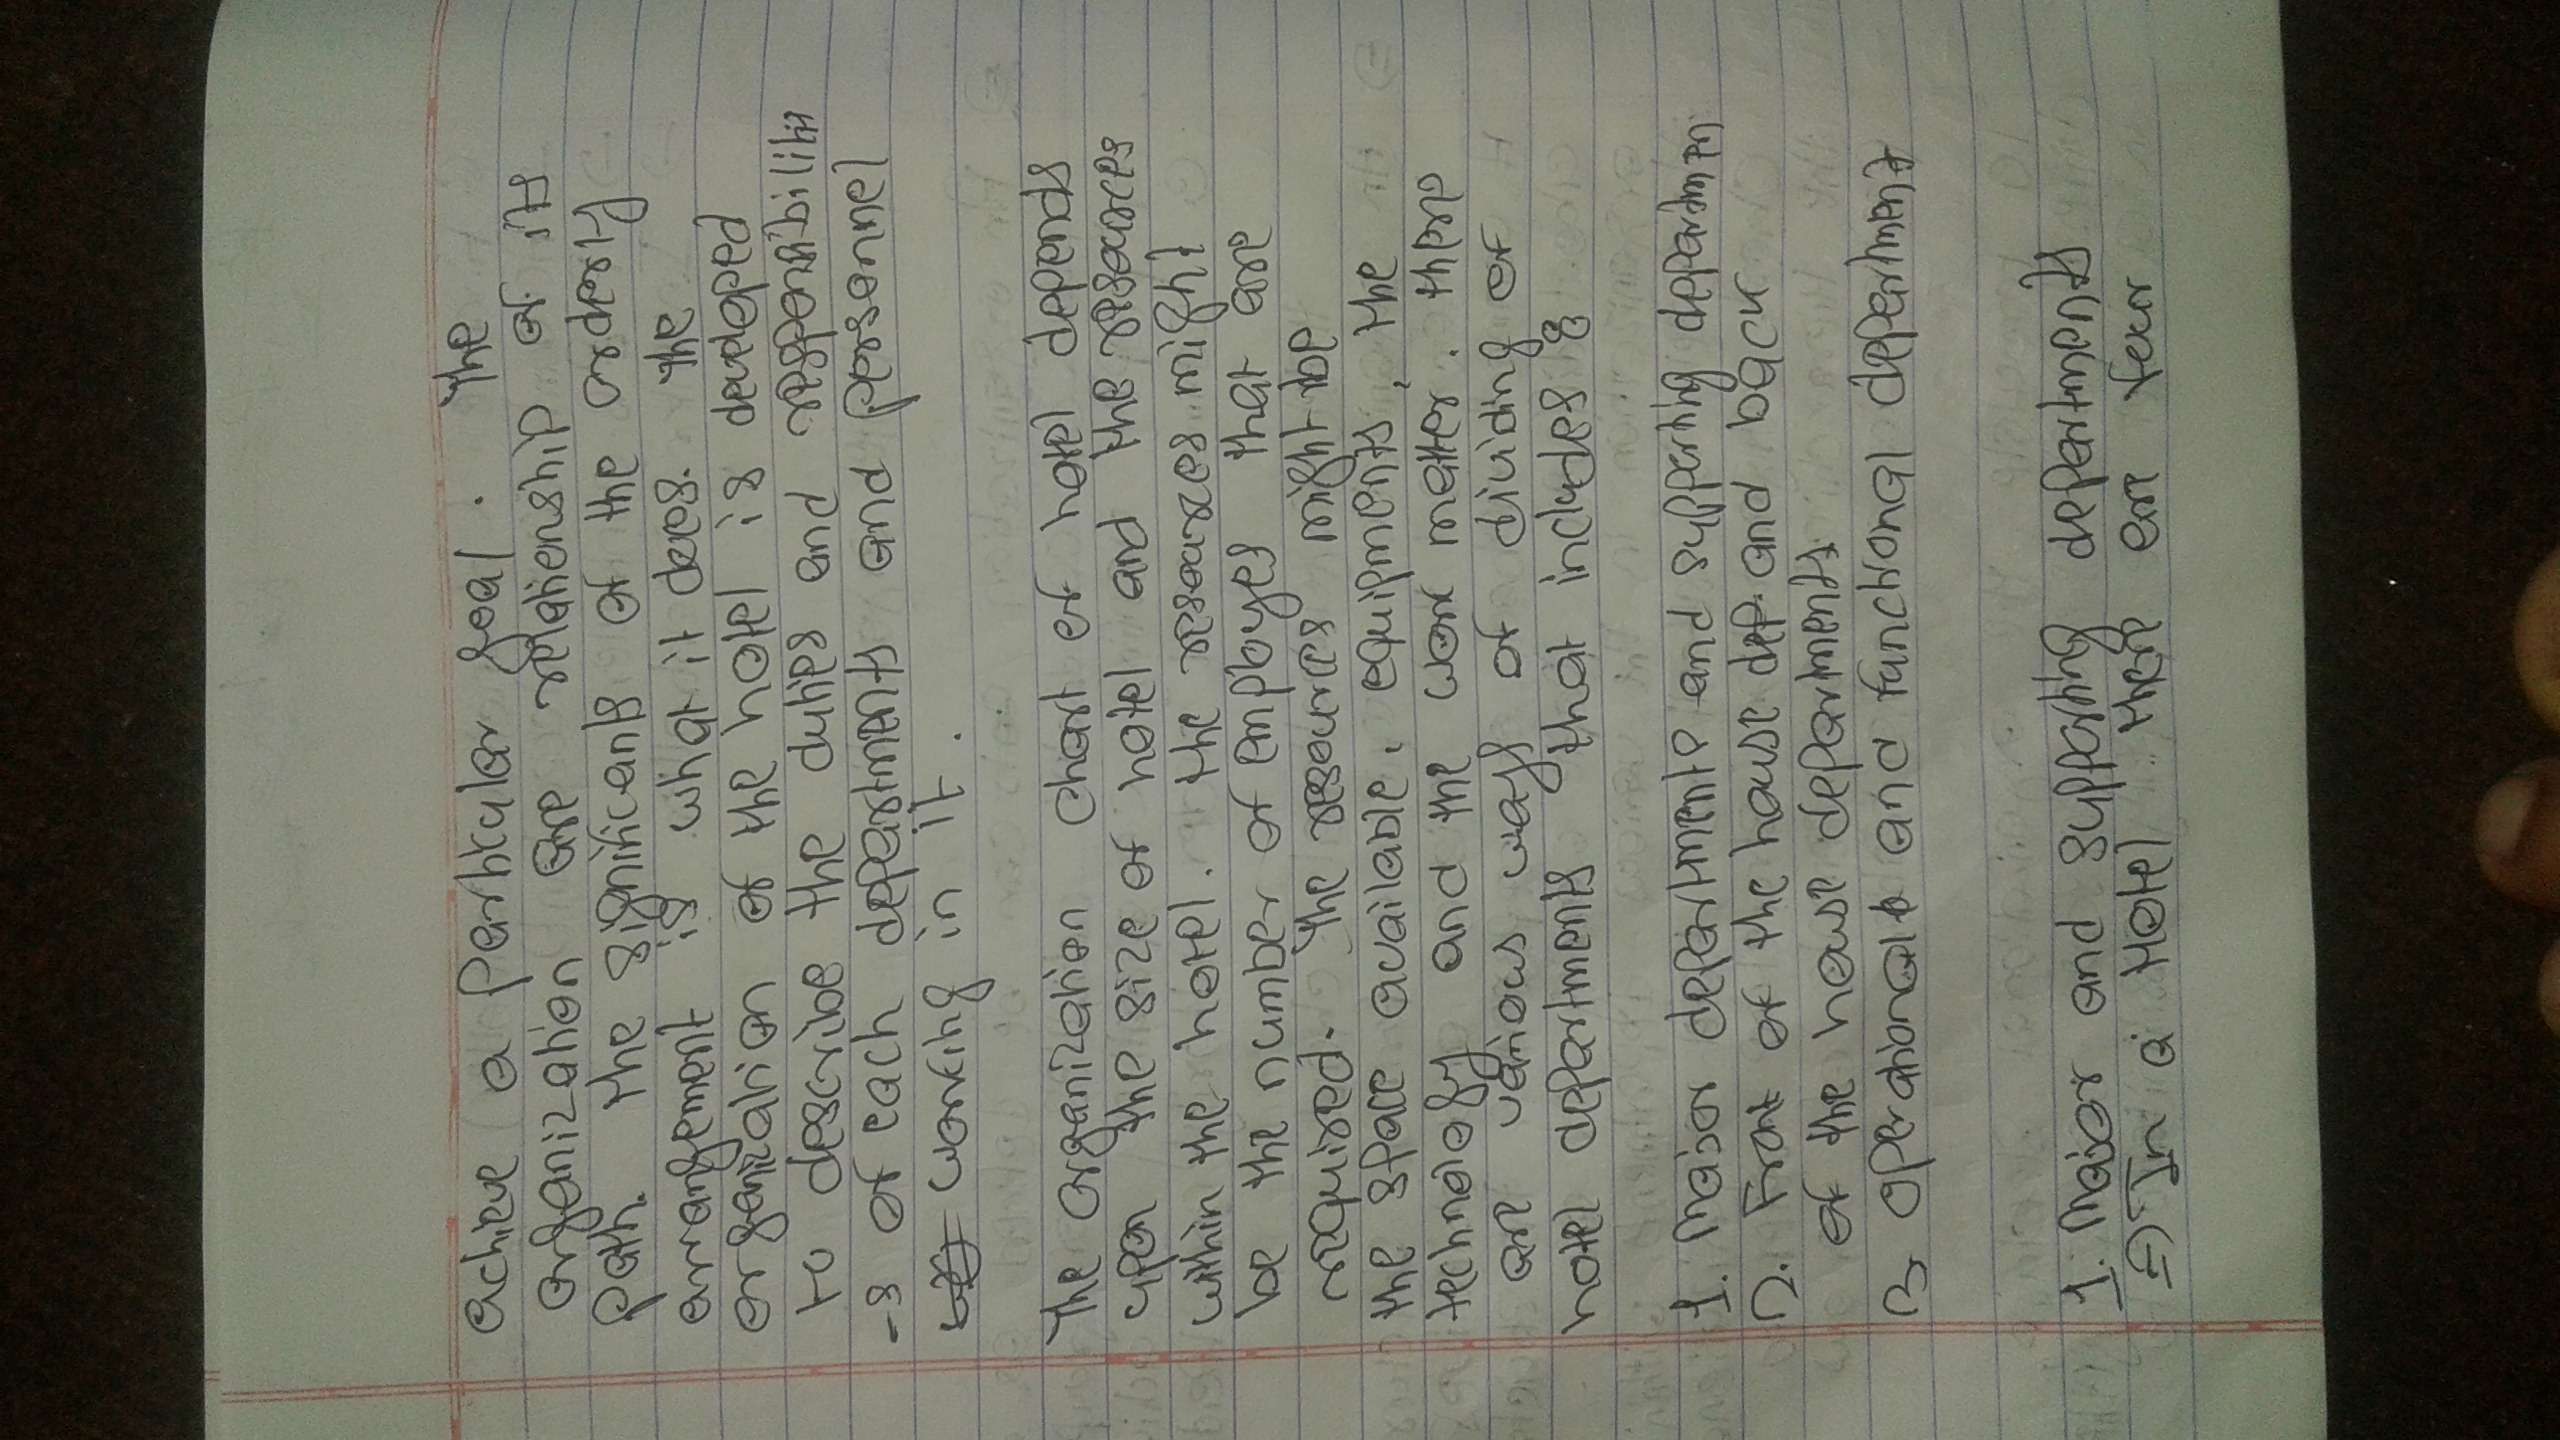 achive a particular goal. The
organization are relationship of its
path. The significants of the orderly
arrangement is what it does. The
organization of the hotel is developed
to describe the duties and responsibiliti
-s of each departments and personnel
working in it.
The organization chart of hotel depends
upon the size of hotel and the resources
within the hotel. The resources might
be the number of employes that are
required. The resources might be
the space available, equipments, the
technology and the work matter. there
are various ways of dividing of
hotel departments that includes :
1. Major department and supporting departmen.
2. Front of the house dep. and back
of the house departments.
3. operational and functional department
1. Major and supporting departments
=> In a Hotel there are four